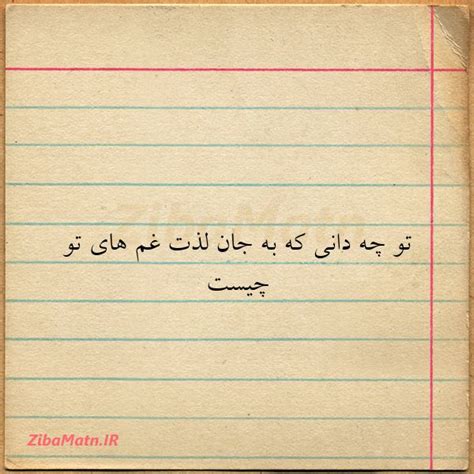 ZibaMatn
تو چه دانی که به جان لذت غم های تو
چیست
ZibaMatn.IR